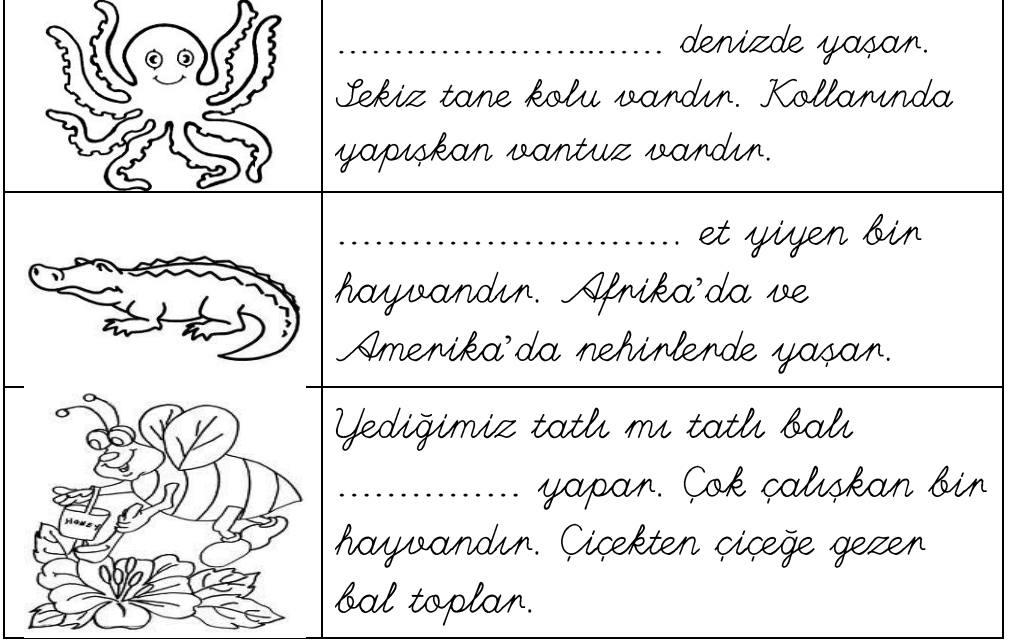 ............................. denizde yaşar.
Sekiz tane kolu vardır. Kollarında
yapışkan vantuz vardır.
............................ et yiyen bir
hayvandır. Afrika'da ve
Amerika'da nehirlerde yaşar.
HONEY
Yediğimiz tatlı mı tatlı balı
............... yapar. Çok çalışkan bir
hayvandır. Çiçekten çiçeğe gezer
bal toplar.